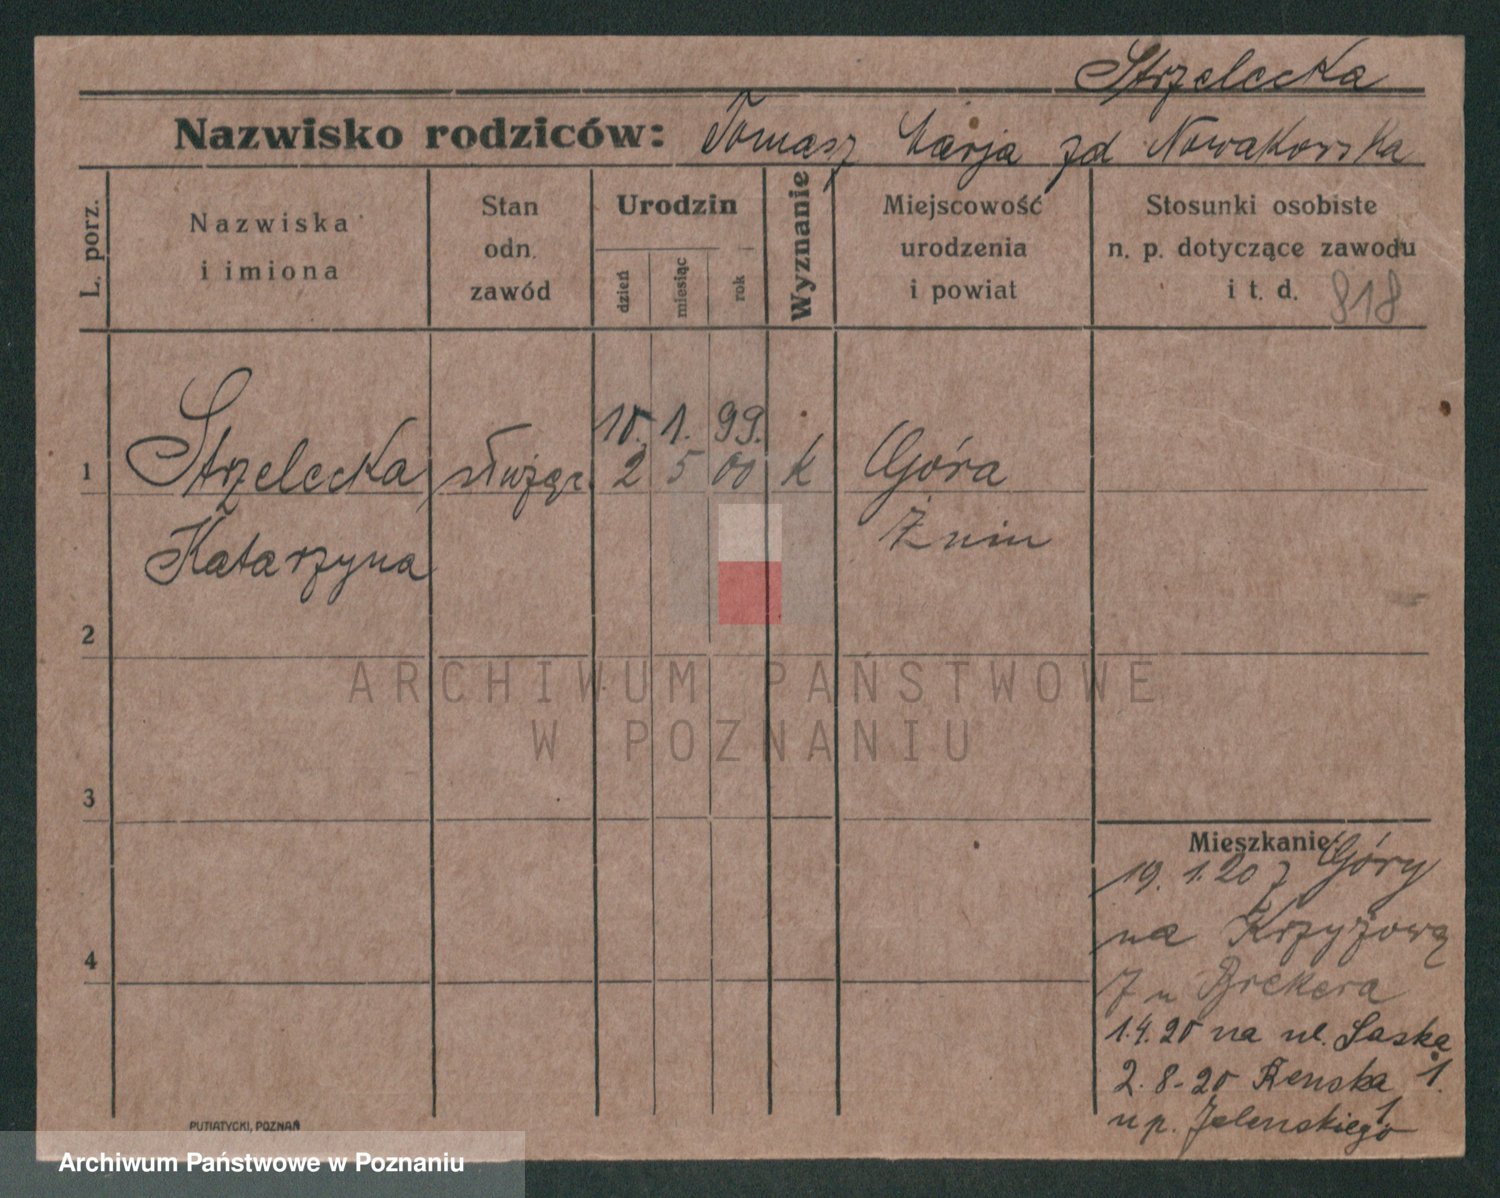 Strzelecka
Nazwisko rodziców: Tomasz Marja zd Nowakowska
L. porz.
Nazwiska
i imiona
Stan
odn.
zawód
Urodzin
dzień
miesiąc
rok
Wyznanie
Miejscowość
urodzenia
i powiat
Stosunki osobiste
n. p. dotyczące zawodu
i t. d. 818
10. 1. 99.
1 Strzelecka służąc. 2 5 00 k Góra
Katarzyna Żnin
2
3
4
Mieszkanie:
19. 1. 20 z Góry
na Krzyżową
7 u Brekera
1.4.20 na ul. Saską
2. 8-20 1.
u p. Jelenskiego
PUTIATYCKI, POZNAŃ
ARCHIWUM PAŃSTWOWE
W POZNANIU
Archiwum Państwowe w Poznaniu